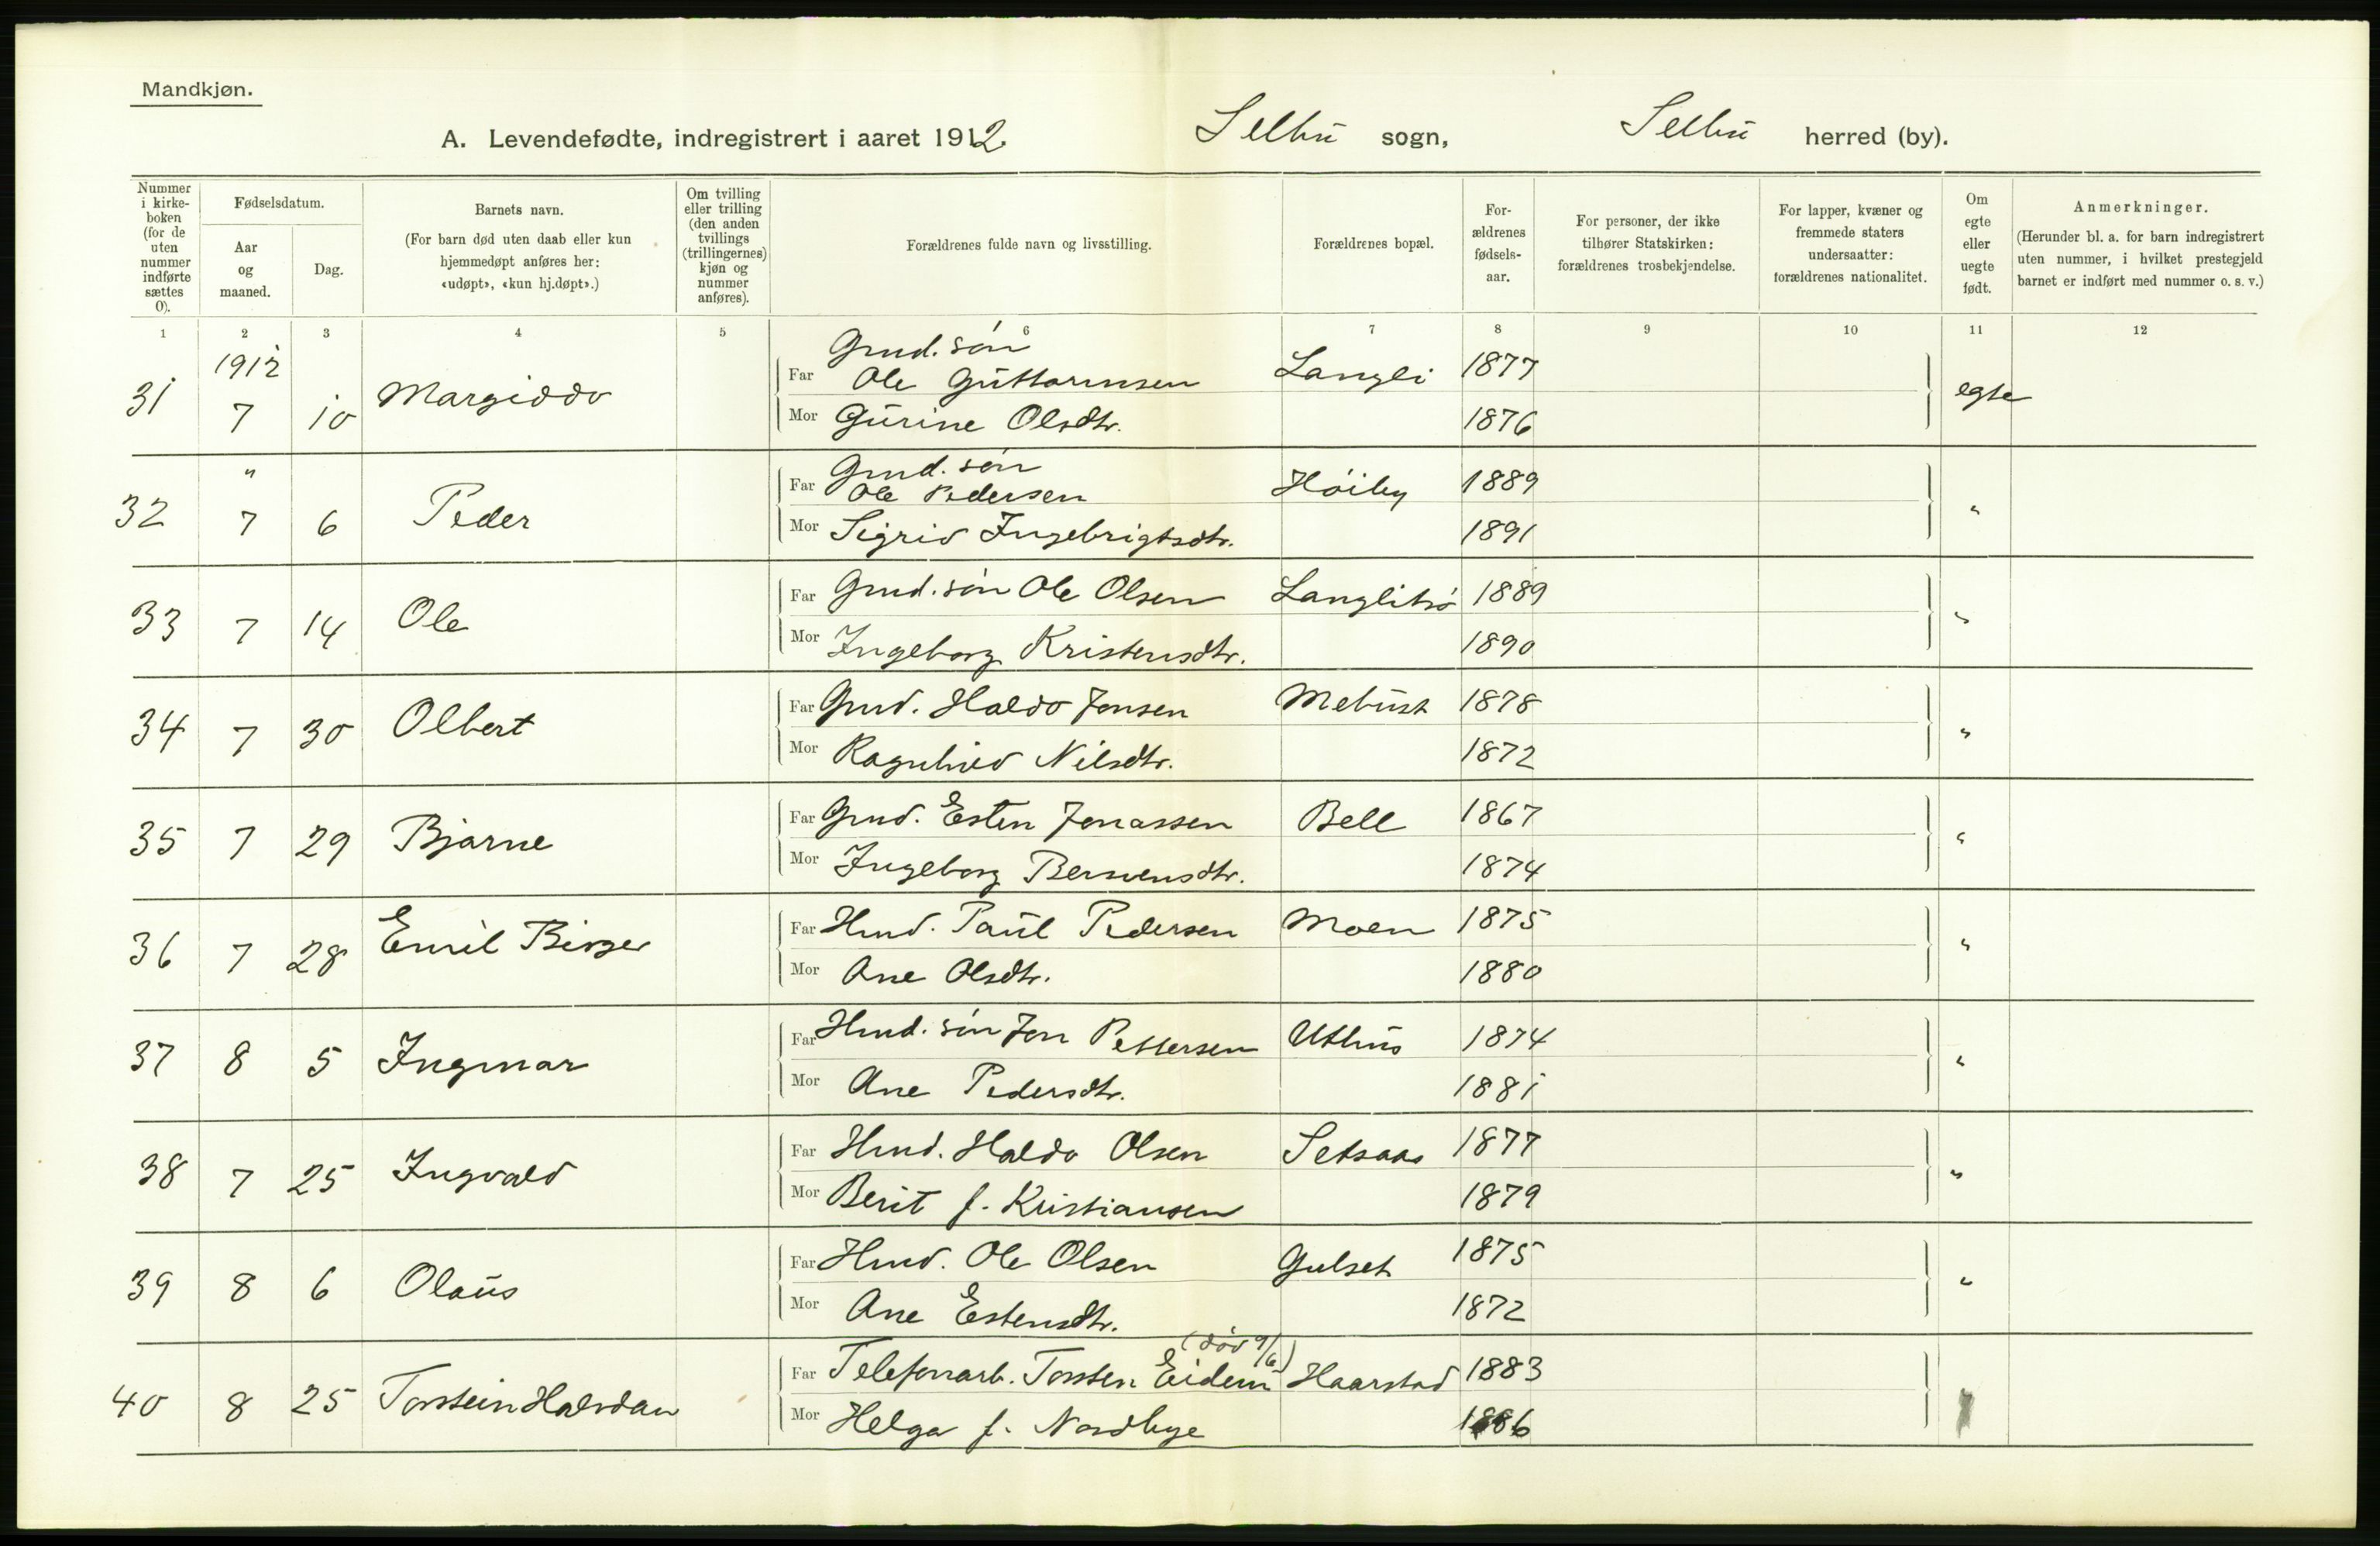 Mandkjøn.
A. Levendefødte, indregistrert i aaret 1912. Selbu sogn, Selbu herred (by).
Nummer i kirkeboken (for de uten nummer indførte sættes 0).
Fødselsdatum.
Aar og maaned.
Dag.
Barnets navn.
(For barn død uten daab eller kun hjemmedøpt anføres her: «udøpt», «kun hj.døpt».)
Om tvilling eller trilling (den anden tvillings (trillingernes) kjøn og nummer anføres).
Forældrenes fulde navn og livsstilling.
Forældrenes bopæl.
Forældrenes fødselsaar.
For personer, der ikke tilhører Statskirken: forældrenes trosbekjendelse.
For lapper, kvæner og fremmede staters undersaatter: forældrenes nationalitet.
Om egte eller uegte født.
Anmerkninger.
(Herunder bl. a. for barn indregistrert uten nummer, i hvilket prestegjeld barnet er indført med nummer o. s. v.)
1 2 3 4 5 6 7 8 9 10 11 12
1912 Grud. søn
31 7 10 Margiddo Far Ole Guttormsen Langli 1877 egte
Mor Gurine Olsdtr. 1876
" Grud. søn
32 7 6 Peder Far Ole Pedersen Høiby 1889 "
Mor Sigrid Ingebrigtsdtr. 1891
33 7 14 Ole Far Grud. søn Ole Olsen Langlitrø 1889 "
Mor Ingeborg Kristensdtr. 1890
34 7 30 Olbert Far Grud. Haldo Jonsen Mebust 1878 "
Mor Ragnhild Nilsdtr. 1872
35 7 29 Bjarne Far Grud. Esten Jonassen Bell 1867 "
Mor Ingeborg Bersvensdtr. 1874
36 7 28 Emil Birger Far Hmd. Paul Pedersen Moen 1875 "
Mor Ane Olsdtr. 1880
37 8 5 Ingmar Far Hmd. søn Jon Pettersen Uthus 1874 "
Mor Ane Pedersdtr. 1881
38 7 25 Ingvald Far Hmd. Haldo Olsen Setsaas 1877 "
Mor Berit f. Kristiansen 1879
39 8 6 Olaus Far Hmd. Ole Olsen Gulset 1875 "
Mor Ane Estensdtr. 1872
(død 9/6)
40 8 25 Torstein Halvdan Far Telefonarb. Torsten Eidem Haarstad 1883
Mor Helga f. Nordbye 1886